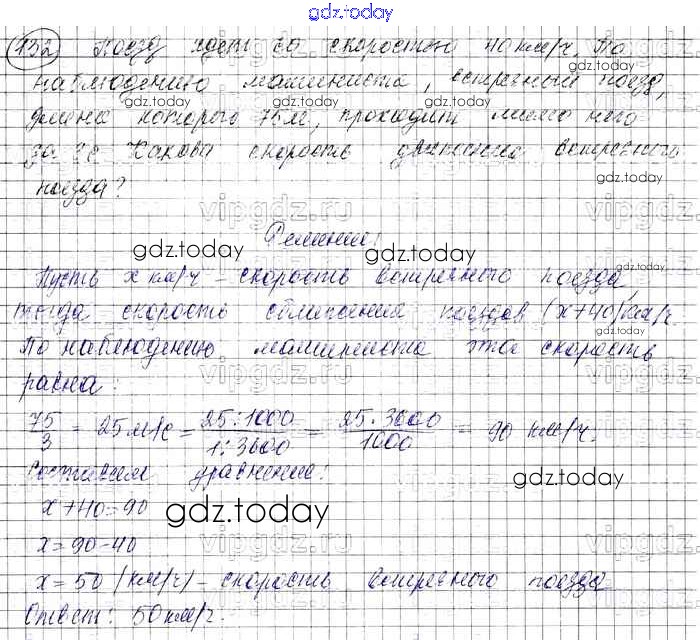 gdz.today
132 Поезд идет со скоростью 40 км/ч. По
наблюдению машиниста, встречный поезд,
gdz.today gdz.today gdz.today
длина которого 75м, проходит мимо него
за 3с. Какова скорость движения встречного
gdz.today
поезда?
vipgdz.ru vipgdz.ru
Решение:
gdz.today gdz.today
Пусть x км/ч - скорость встречного поезда,
тогда скорость сближения поездов (x+40) км/ч.
gdz.today
По наблюдению машиниста эта скорость
равна:
vipgdz.ru vipgdz.ru
75/3 = 25 м/с = 25:1000/1:3600 = 25·3600/1000 = 90 км/ч.
Составим уравнение:
gdz.today
x+40=90
gdz.today
x=90-40
vipgdz.ru vipgdz.ru
x=50 (км/ч) - скорость встречного поезда
Ответ: 50 км/ч.
gdz.today